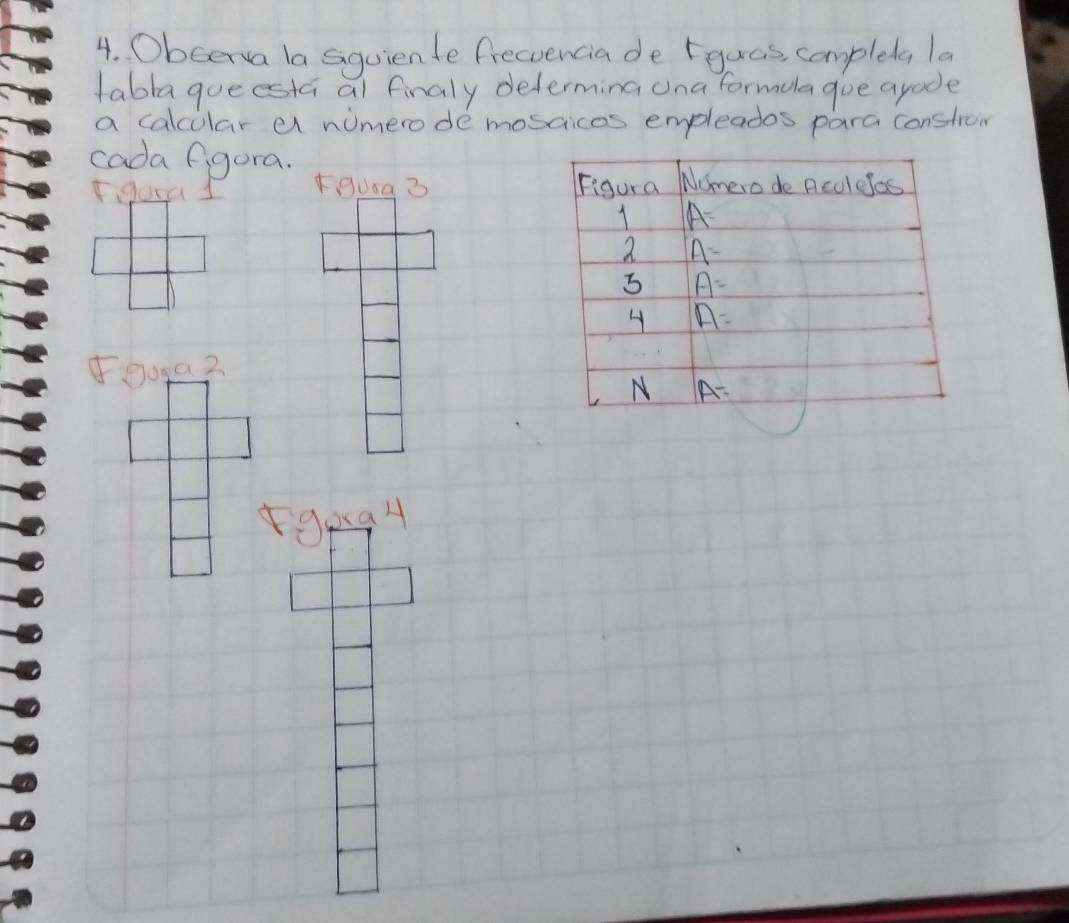 4. Observa la siguiente frecuencia de Figuras, completa la
tabla que está al final y determina una formula que ayude
a calcular el número de mosaicos empleados para construir
cada figura.
Figura 1
Figura 3
Figura 2
Figura 4
Figura Número de Aculejos
1 A=
2 A=
3 A=
4 A=
...
N A=